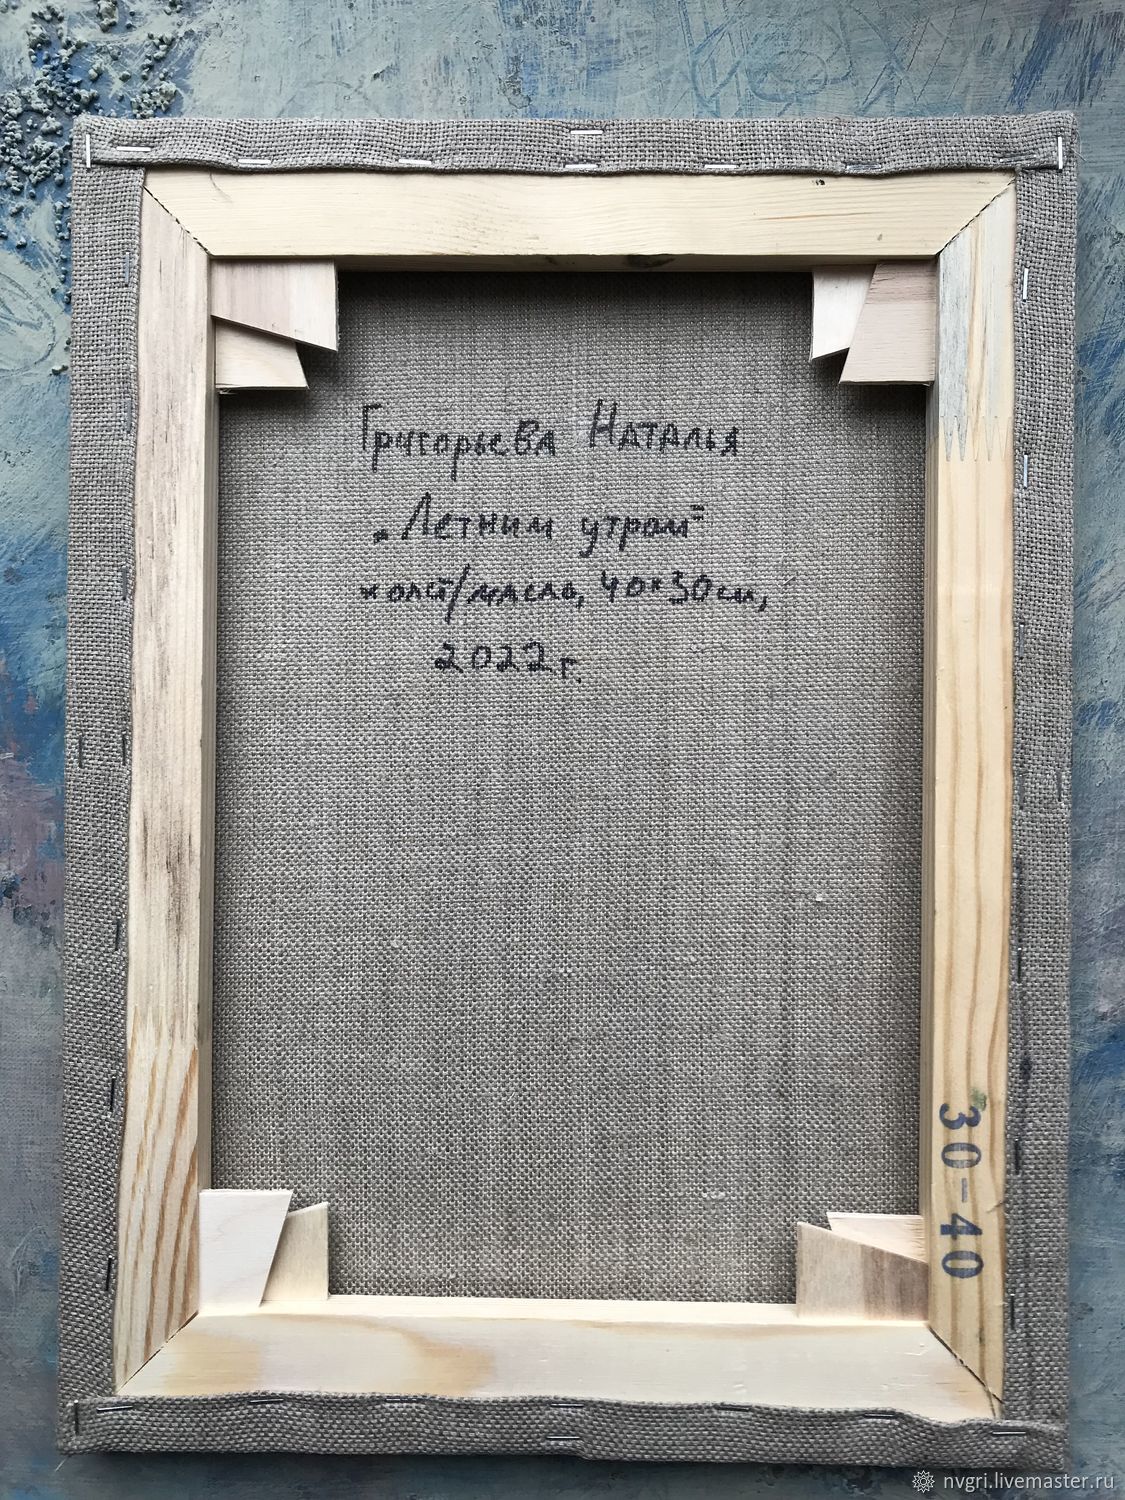 Григорьева Наталья
„Летним утром"
холст/масло, 40*30см,
2022г.
30-40
nvgri.livemaster.ru